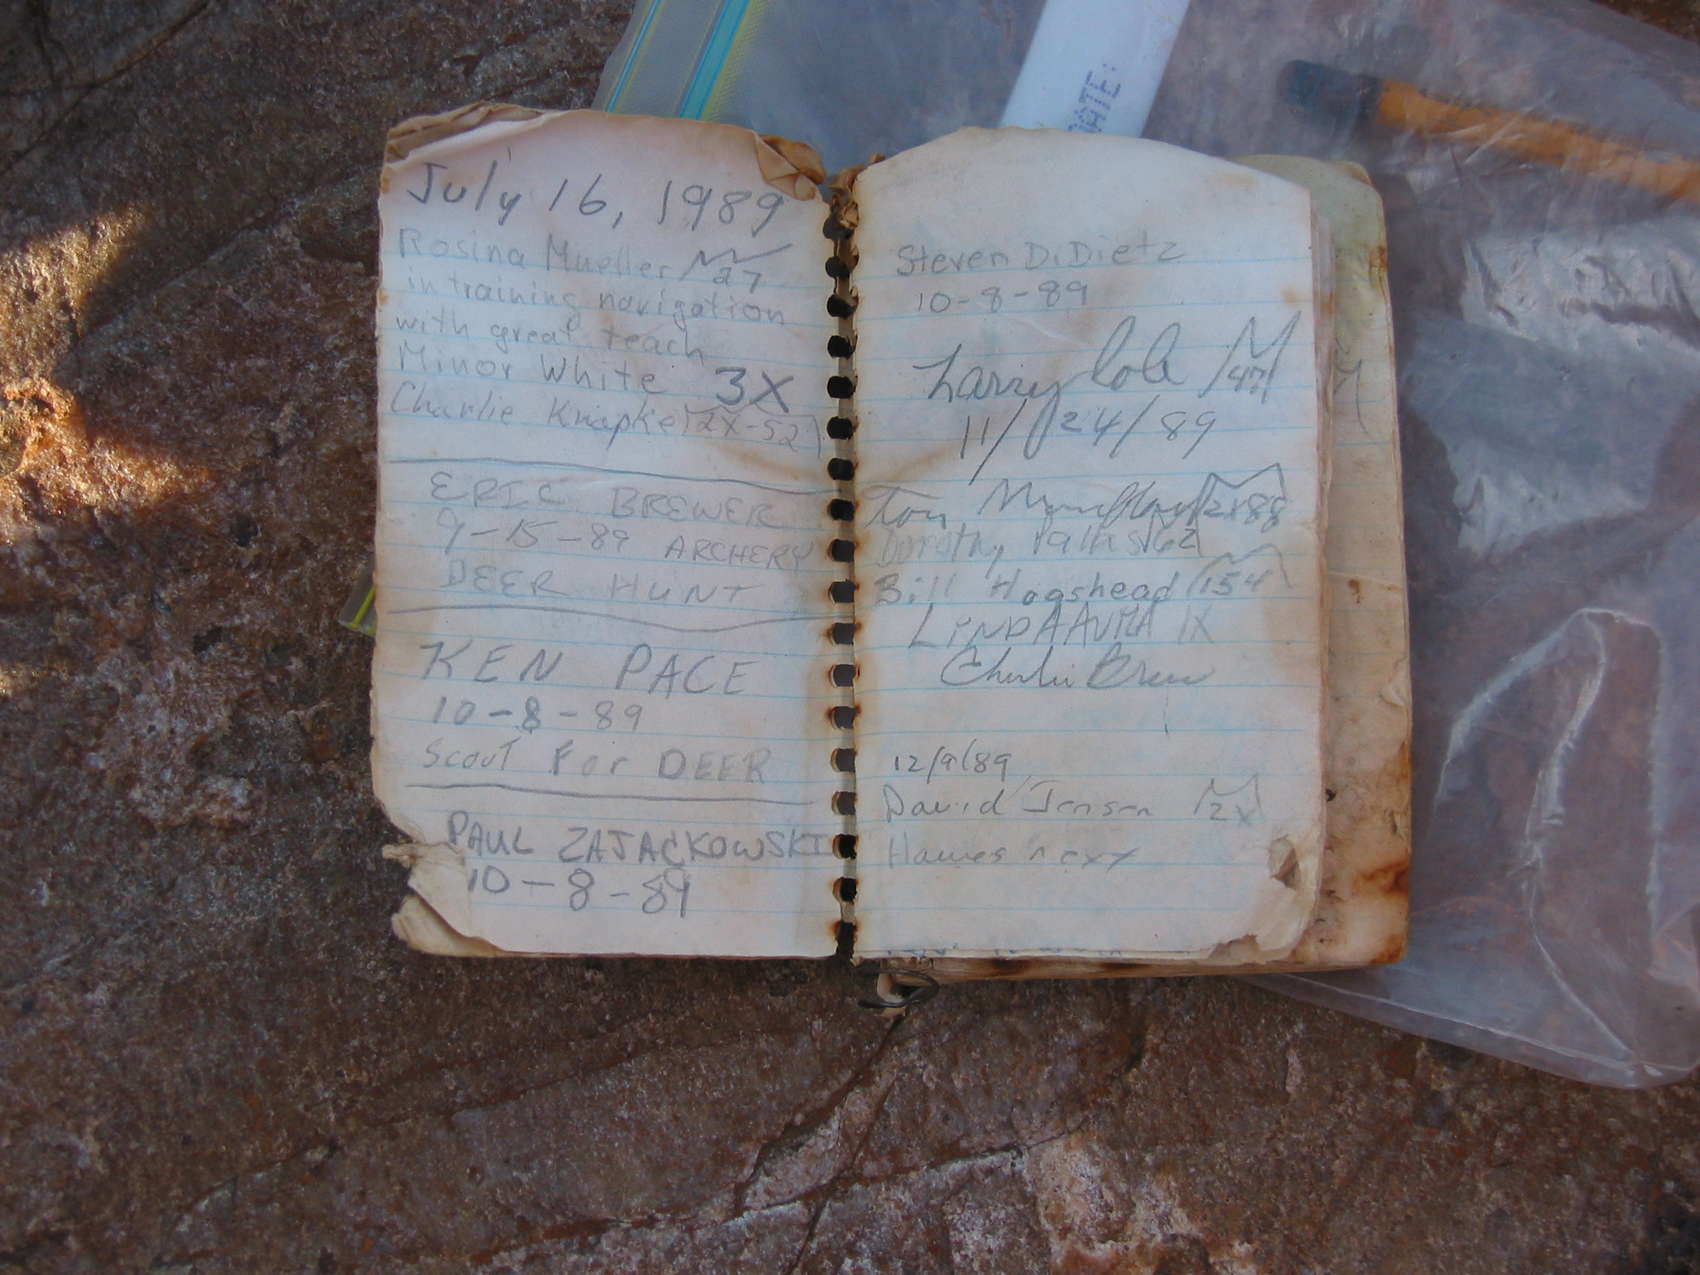 July 16, 1989
Rosina Mueller 27
in training navigation
with great teach
Minor White 3X
Charlie Knapke 2X-52
ERIC BREWER
9-15-89 ARCHERY
DEER HUNT
KEN PACE
10-8-89
Scout For DEER
PAUL ZAJACKOWSKI
10-8-89
DATE:
Steven DiDietz
10-8-89
Larry Cole 47
11/24/89
Tom 2x88
Dorothy 62
Bill Hogshead 154
LYNDA 1X
Charlie
12/9/89
David Jensen 2x